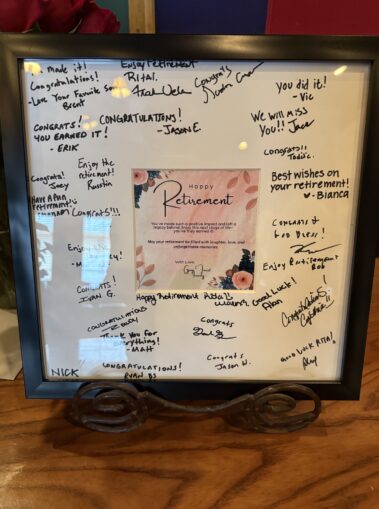 made it!
Congratulations!
-Love Your Favorite Son
Brent
Enjoy Retirement
Rita!
Congrats
You did it!
- Vic
CONGRATS!
YOU EARNED IT!
- ERIK
CONGRATULATIONS!
- JASON E.
We will miss
You!! Jace
Congrats!!
Todd
Congrats!
Joey
Enjoy the
retirement!
Best wishes on
your retirement!
♥ - Bianca
HAVE A FUN
RETIREMENT!
Congrats!!!
Happy
Retirement
You've made such a positive impact and left a
legacy behind. Enjoy this next stage of life -
you've they earned it.
May your retirement be filled with laughter, love, and
unforgettable memories.
With Love,
CONGRATS &
GOD BLESS!
Enjoy
Enjoy Retirement
Bob
CONGRATS!
IVAN G.
Happy Retirement Rita!!
Good Luck!
Alan
Congratulations
CONGRATULATIONS
Congrats
Thank You for
everything!
- Matt
CONGRATULATIONS!
RYAN DS
Congrats
Jason W.
GOOD LUCK RITA!
NICK